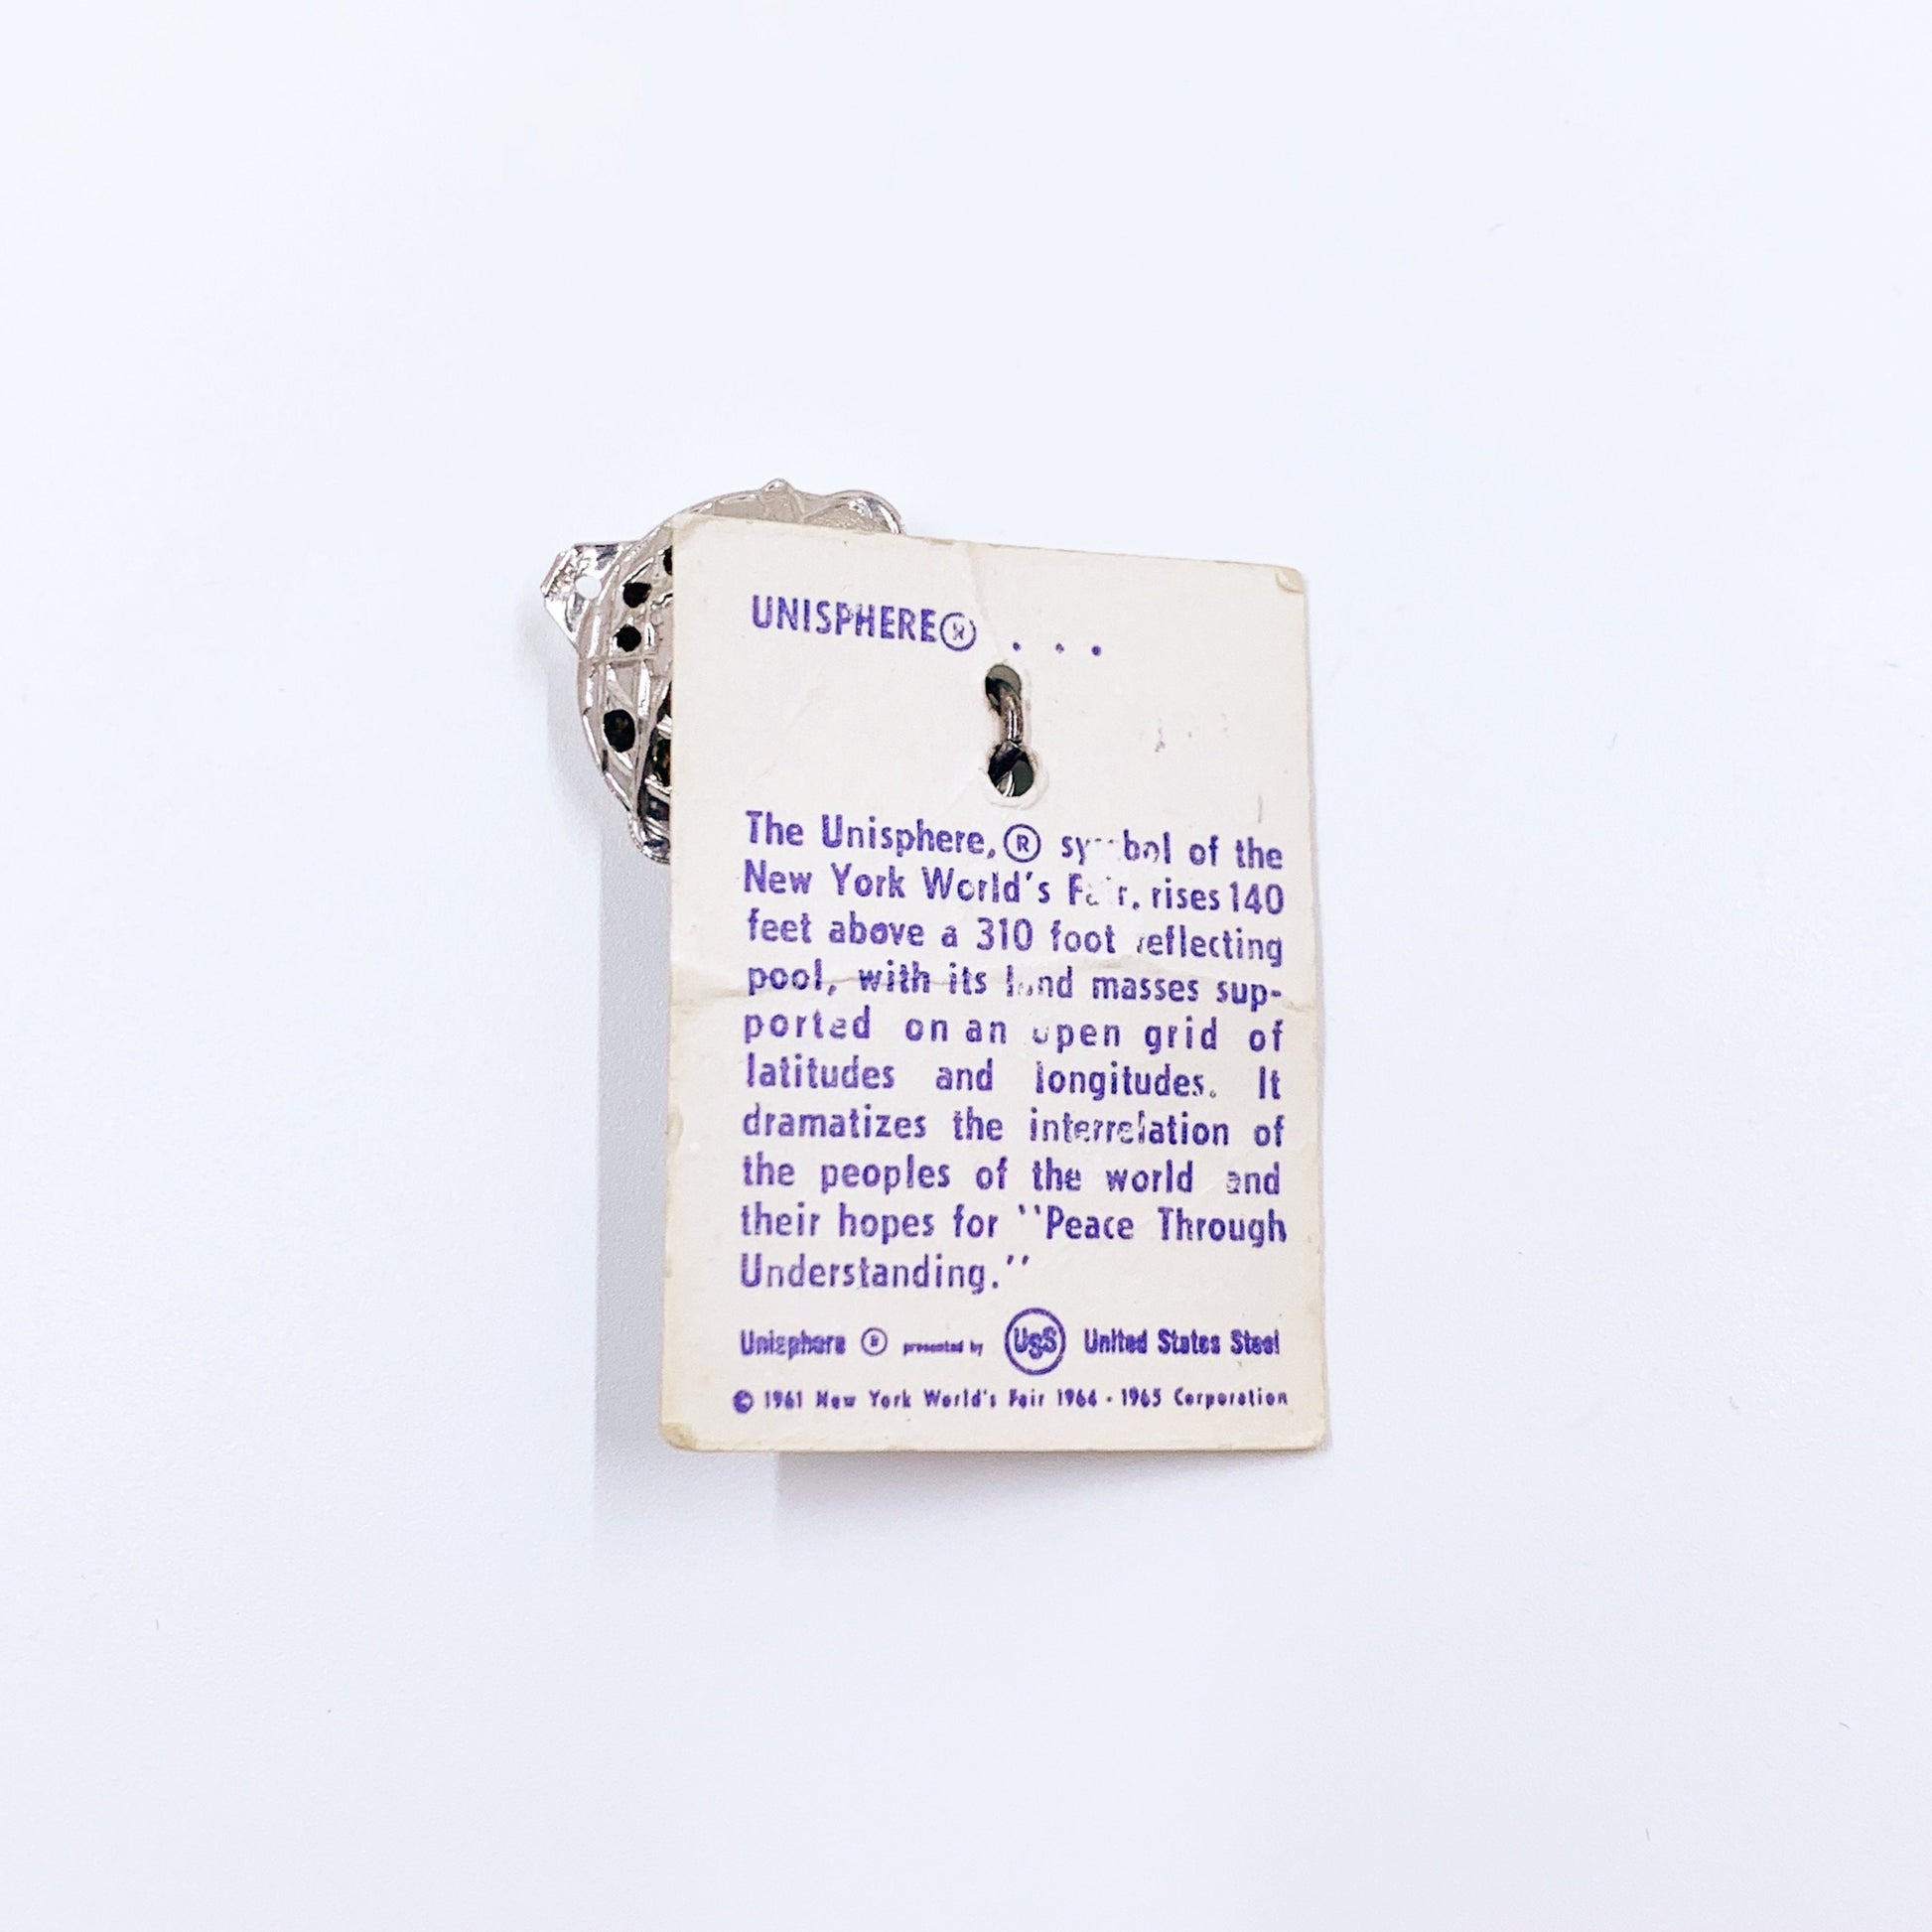 UNISPHERE® . . .
The Unisphere,® symbol of the
New York World's Fair, rises 140
feet above a 310 foot reflecting
pool, with its land masses sup-
ported on an open grid of
latitudes and longitudes. It
dramatizes the interrelation of
the peoples of the world and
their hopes for "Peace Through
Understanding."
Unisphere ® presented by USS United States Steel
© 1961 New York World's Fair 1964 - 1965 Corporation